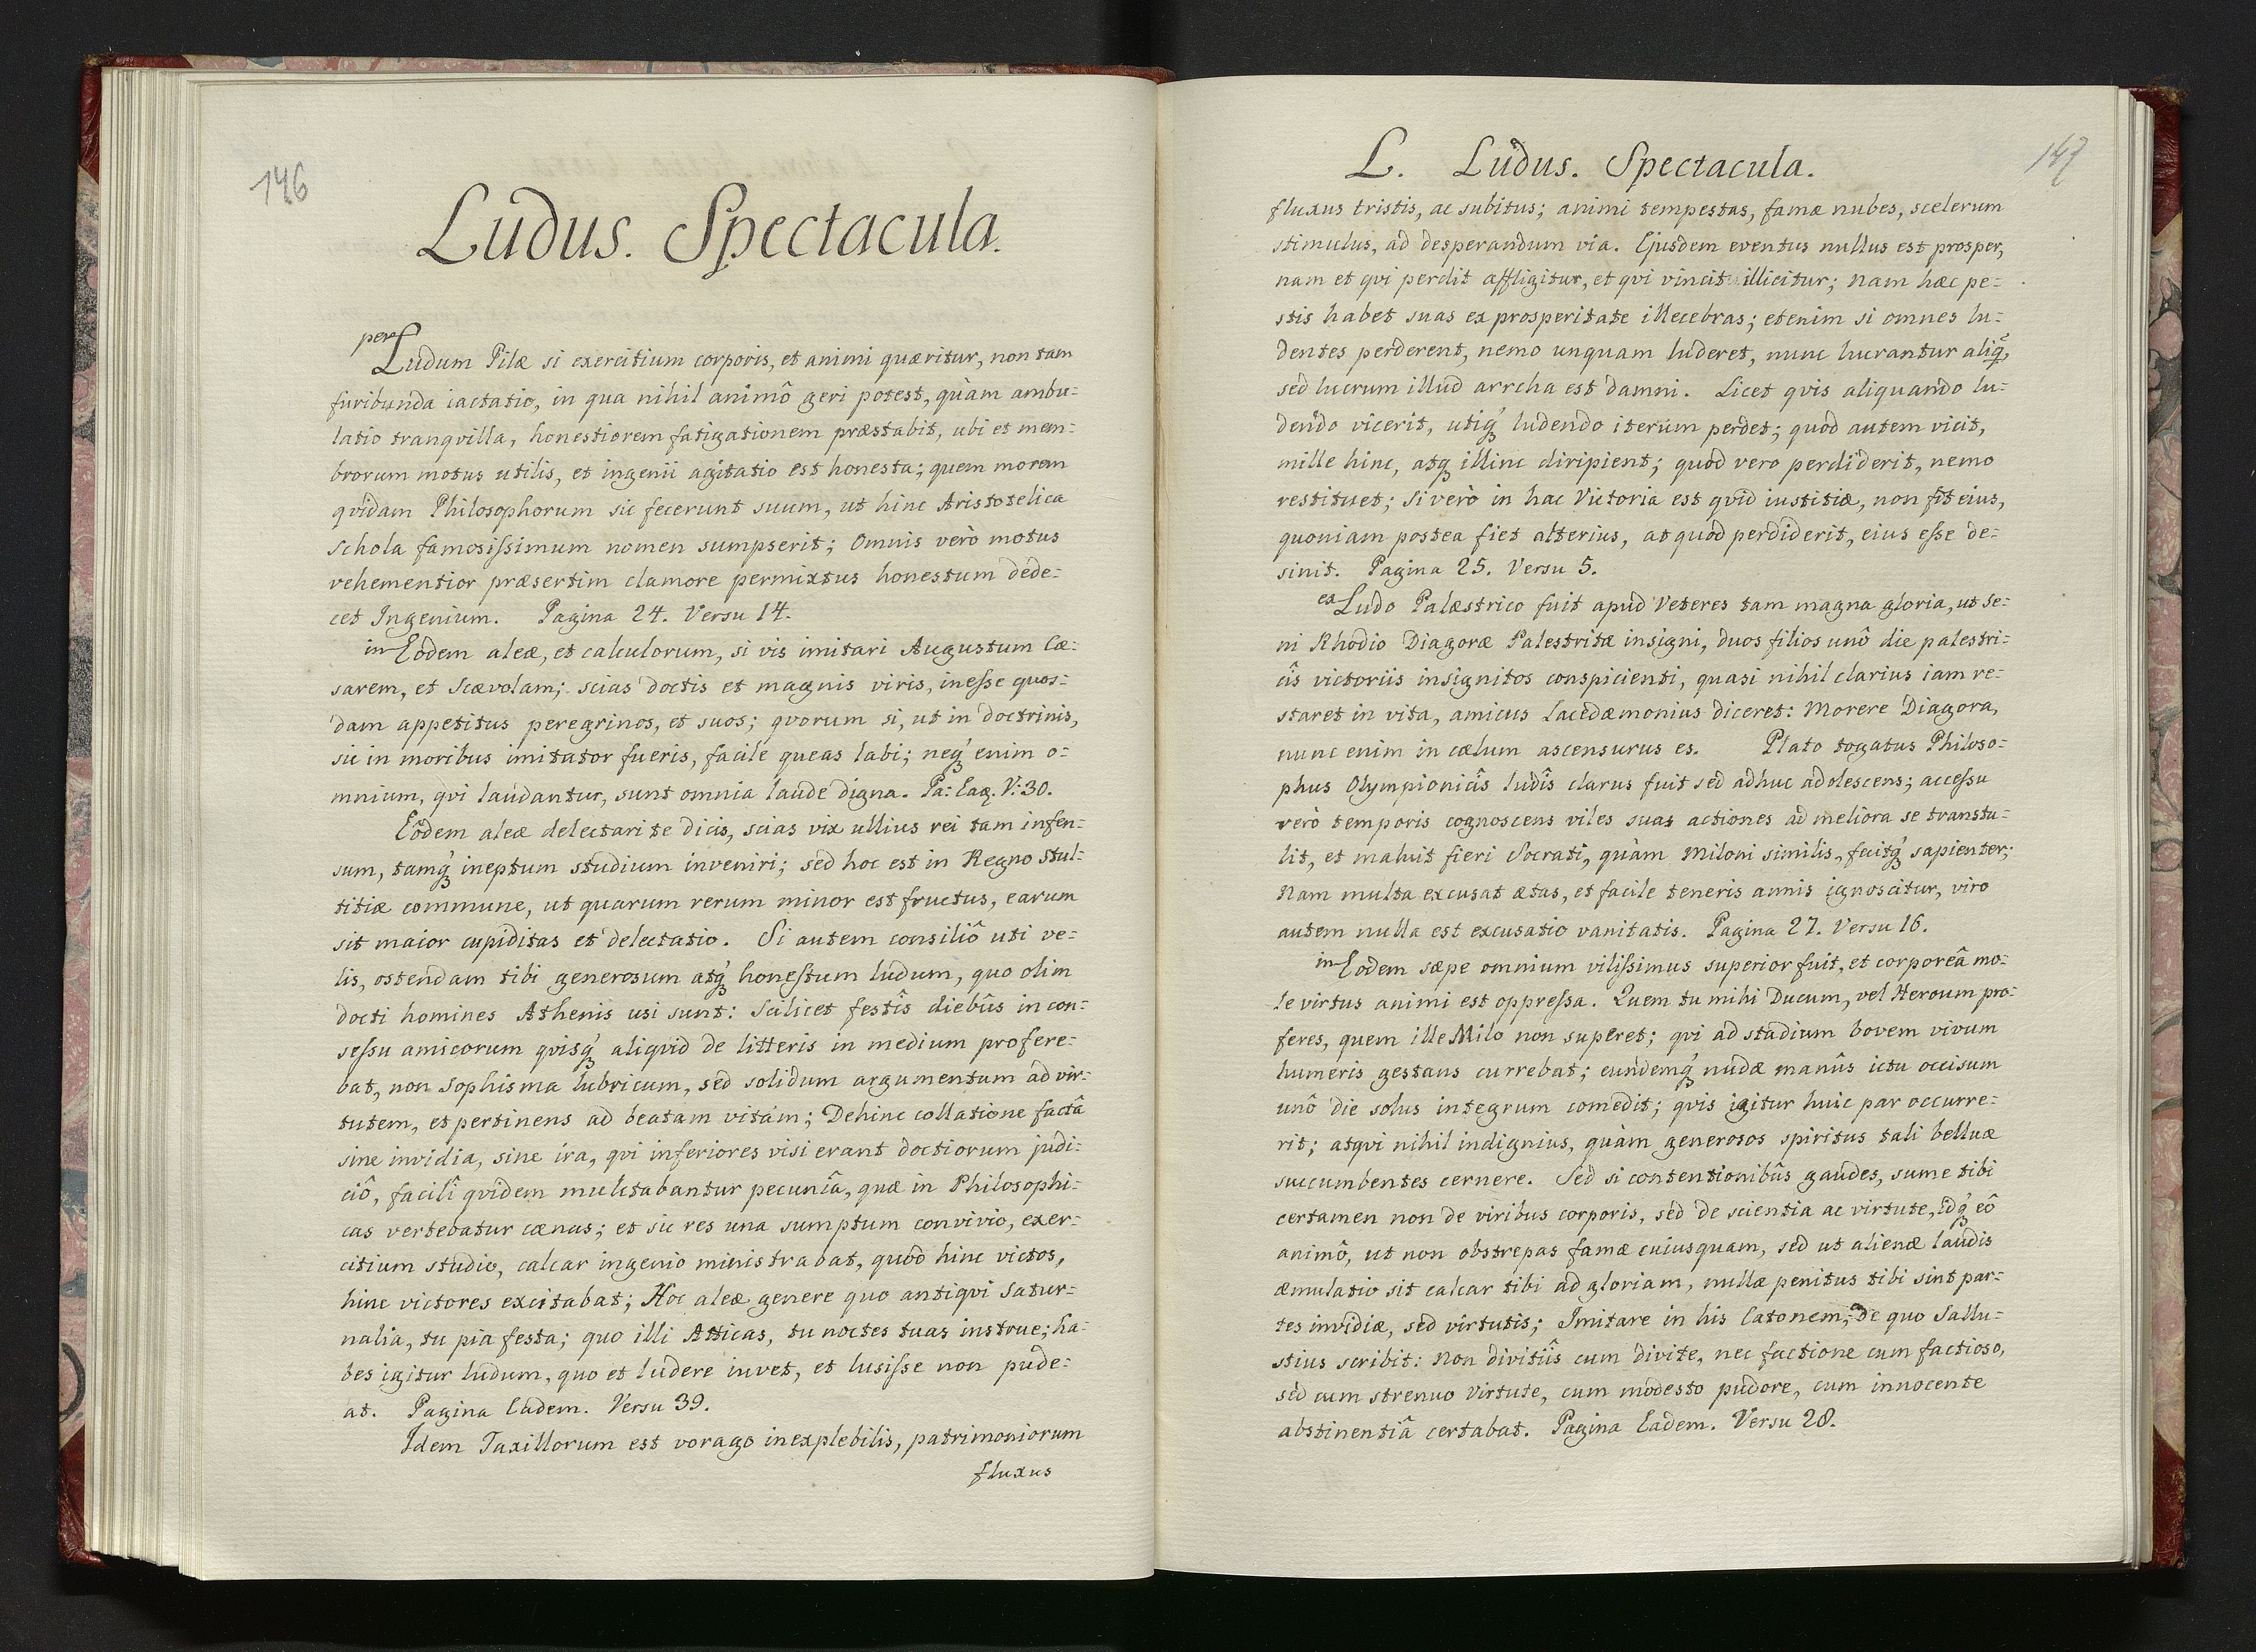 146
Ludus. Spectacula.
per Ludum Pilæ si exercitium corporis, et animi quæritur, non tam
furibunda iactatio, in qua nihil animô geri potest, quàm ambu=
latio tranqvilla, honestiorem fatigationem præstabit, ubi et mem=
brorum motus utilis, et ingenii agitatio est honesta; quem morem
qvidam Philosophorum sic fecerunt suum, ut hinc Aristotelica
schola famosissimum nomen sumpserit; Omnis verò motus
vehementior præsertim clamore permixtus honestum dede=
cet Ingenium. Pagina 24. Versu 14.
in Eôdem aleæ, et calculorum, si vis imitari Augustum Cæ=
sarem, et Scævolam; scias doctis et magnis viris, inesse quos=
dam appetitus peregrinos, et suos; qvorum si, ut in doctrinis,
sic in moribus imitator fueris, facile queas labi; neq́ꝫ enim o=
mnium, qvi laudantur, sunt omnia laude digna. Pa: Eaꝫ. V: 30.
Eôdem aleæ delectari te dicis, scias vix ullius rei tam infen=
sum, tamq́ꝫ ineptum studium inveniri; sed hoc est in Regno Stul=
titiæ commune, ut quarum rerum minor est fructus, earum
sit maior cupiditas et delectatio. Si autem consiliô uti ve=
lis, ostendam tibi generosum atq́ꝫ honestum ludum, quo olim
docti homines Athenis usi sunt: Scilicet festîs diebûs in con=
sessu amicorum qvisq́ꝫ aliqvid de litteris in medium profere=
bat, non sophisma lubricum, sed solidum argumentum ad vir=
tutem, et pertinens ad beatam vitam; Dehinc collatione factâ
sine invidia, sine ira, qvi inferiores visi erant doctiorum judi=
ciô, facilî qvidem mulctabantur pecuniâ, quæ in Philosophi=
cas vertebatur cænas; et sic res una sumptum convivio, exer=
citium studio, calcar ingenio ministrabat, quòd hinc victos,
hinc victores excitabat; Hoc aleæ genere quo antiqvi Satur=
nalia, tu pia festa; quo illi Atticas, tu noctes tuas instrue; ha=
bes igitur ludum, quo et ludere iuvet, et lusisse non pude=
at. Pagina Eadem. Versu 39.
Idem Taxillorum est vorago inexplebilis, patrimoniorum
fluxus
L. Ludus. Spectacula.
147
fluxus tristis, ac subitus; animi tempestas, famæ nubes, scelerum
stimulus, ad desperandum via. Ejusdem eventus nullus est prosper,
nam et qvi perdit affligitur, et qvi vincit illicitur; nam hæc pe=
stis habet suas ex prosperitate illecebras; etenim si omnes lu=
dentes perderent, nemo unquam luderet, nunc lucrantur aliq̃,
sed lucrum illud arrcha est damni. Licet qvis aliquando lu=
dendo vicerit, utiq́ꝫ ludendo iterùm perdet; quòd autem vicit,
mille hinc, atqꝫ illinc diripient; quòd vero perdiderit, nemo
restituet; si verò in hac Victoria est qvid iustitiæ, non fit eius,
quoniam postea fiet alterius, at quòd perdiderit, eius esse de=
sinit. Pagina 25. Versu 5.
ex Ludo Palæstrico fuit apud Veteres tam magna gloria, ut se=
ni Rhodio Diagoræ Palestritæ insigni, duos filios unô die palestri=
cîs victoriis insignitos conspicienti, quasi nihil clarius iam re=
staret in vita, amicus Lacedæmonius diceret: Morere Diagora,
nunc enim in cælum ascensurus es. Plato togatus Philoso=
phus Olympionicîs ludîs clarus fuit sed adhuc adolescens; accessu
verò temporis cognoscens viles suas actiones ad meliora se transtu=
lit, et maluit fieri Socrati, quàm Miloni similis, fecitq́ꝫ sapienter;
Nam multa excusat ætas, et facile teneris annis ignoscitur, viro
autem nulla est excusatio vanitatis. Pagina 27. Versu 16.
in Eodem sæpe omnium vilissimus superior fuit, et corporeâ mo=
le virtus animi est oppressa. Quem tu mihi Ducum, vel Heroum pro=
feres, quem ille Milo non superet; qvi ad stadium bovem vivum
humeris gestans currebat; eundemq́ꝫ nudæ manûs ictu occisum
unô die solus integrum comedit; qvis igitur huic par occurre=
rit; atqvi nihil indignius, quàm generosos spiritus tali belluæ
succumbentes cernere. Sed si contentionibûs gaudes, sume tibi
certamen non de viribus corporis, sed de scientia ac virtute, idq́ꝫ eô
animô, ut non obstrepas famæ cuiusquam, sed ut alienæ laudis
æmulatio sit calcar tibi ad gloriam, nullæ penitus tibi sint par=
tes invidiæ, sed virtutis; Imitare in his Catonem, de quo Sallu=
stius scribit: Non divitiîs cum divite, nec factione cum factioso,
sed cum strenuo Virtute, cum modesto pudore, cum innocente
abstinentiâ certabat. Pagina Eadem. Versu 28.